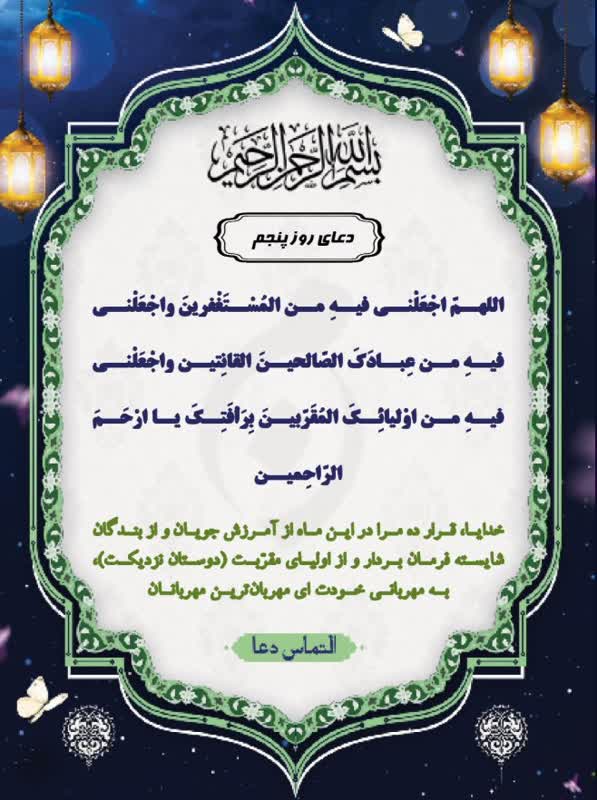 بسم الله الرحمن الرحیم
دعای روز پنجم
اللهمّ اجْعَلْنی فیهِ من المُسْتَغْفرینَ واجْعَلْنی
فیهِ من عِبادَکَ الصّالحینَ القانِتین واجْعَلْنی
فیهِ من اوْلیائِکَ المُقَرّبینَ بِرَأفَتِکَ یا ارْحَمَ
الرّاحِمین
خدایا، قرار ده مرا در این ماه از آمرزش جویان و از بندگان
شایسته فرمان بردار و از اولیای مقرّبت (دوستان نزدیکت)،
به مهربانی خودت ای مهربان‌ترین مهربانان
التماس دعا